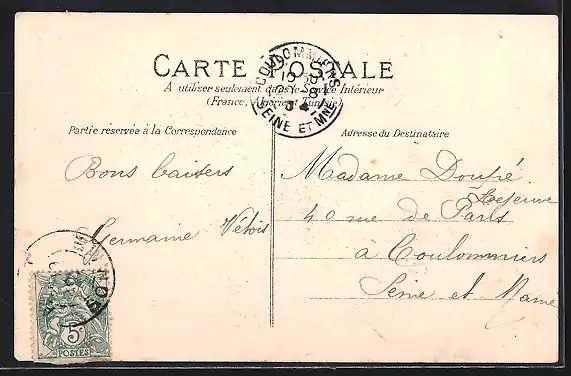 CARTE POSTALE
A utiliser seulement dans le Service Intérieur
(France, Algérie et Tunisie)
Partie réservée à la Correspondance
Adresse du Destinataire
Bons baisers
Germaine
Madame
Lejeune
40 rue de Paris
à Coulommiers
Seine et Marne
COULOMMIERS
SEINE ET MNE
5
POSTES